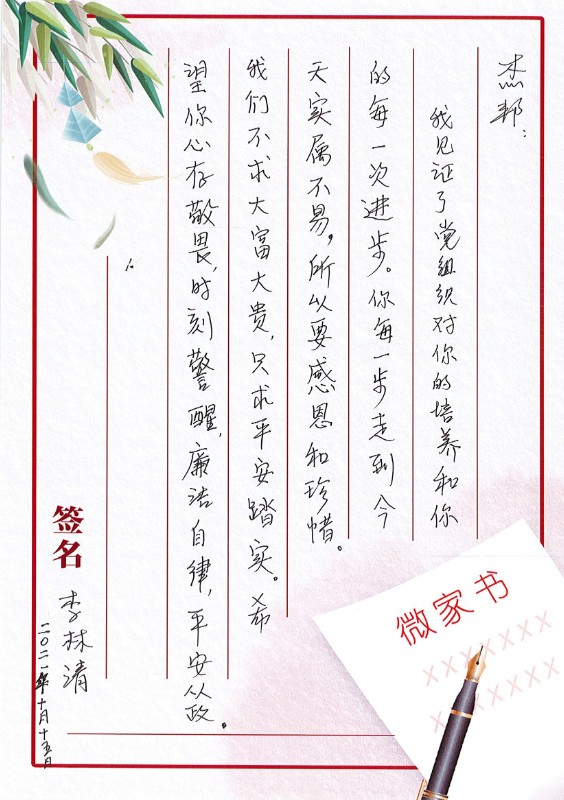 杰邦：
我见证了党组织对你的培养和你
的每一次进步。你每一步走到今
天实属不易，所以要感恩和珍惜。
我们不求大富大贵，只求平安踏实。希
望你心存敬畏，时刻警醒，廉洁自律，平安从政。
签名 李林清
二〇二一年十月十五日
微家书
XXXXXXX
XXXXXXX